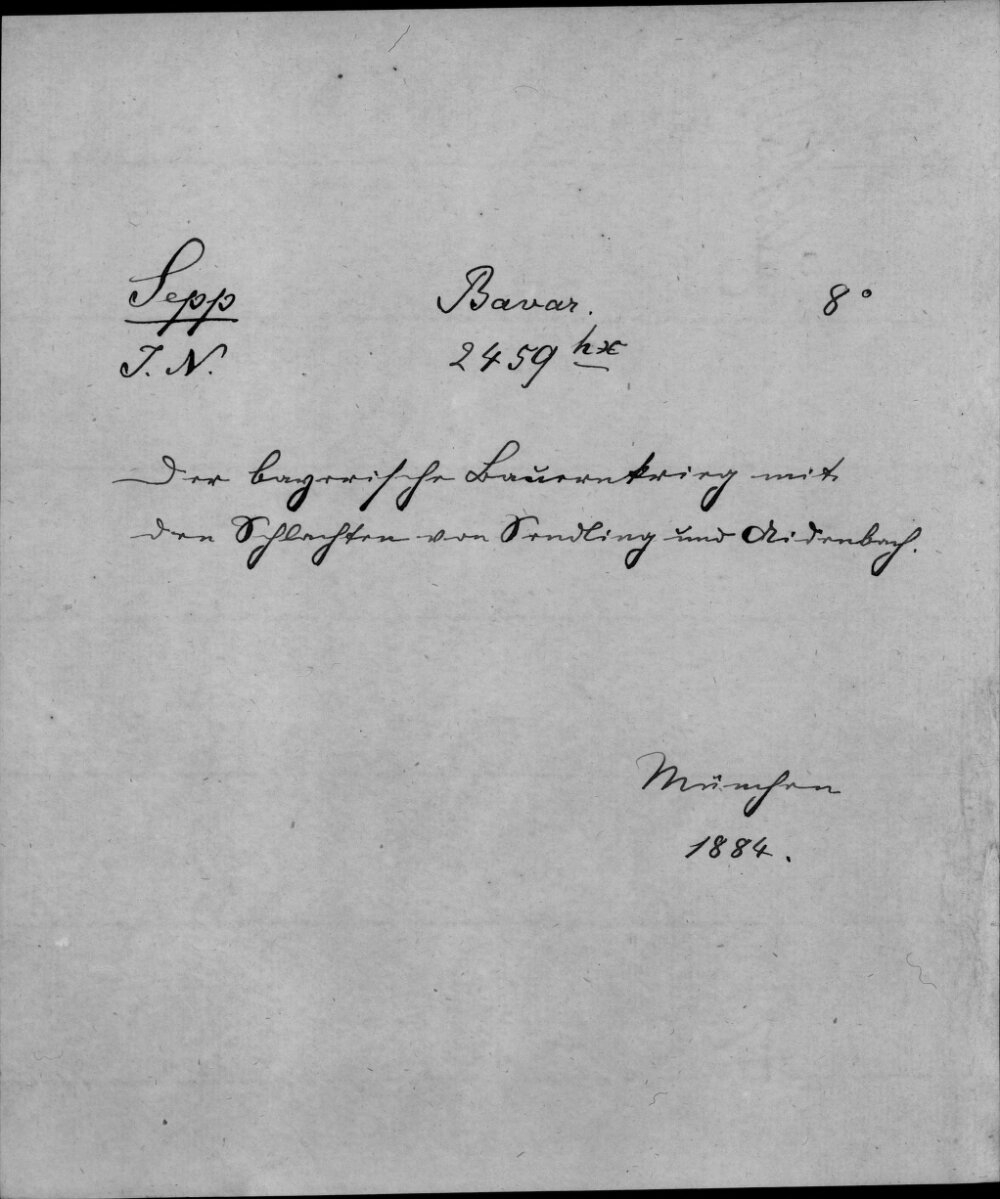 Sepp Bavar. 8°
J. N. 2459 hx
Der bayerische Bauernkrieg mit
den Schlachten von Sendling und Aidenbach.
München
1884.